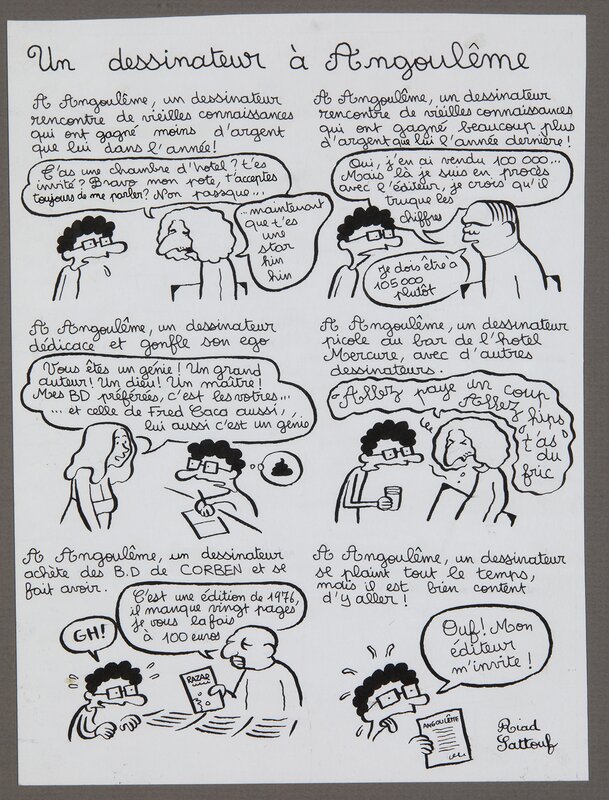 Un dessinateur à Angoulême
A Angoulême, un dessinateur
rencontre de vieilles connaissances
qui ont gagné moins d'argent
que lui dans l'année!
T'as une chambre d'hotel? t'es
invité? Bravo mon pote, t'acceptes
toujours de me parler? Non passque...
...maintenant
que t'es
une
star
hin
hin
A Angoulême, un dessinateur
rencontre de vieilles connaissances
qui ont gagné beaucoup plus
d'argent que lui l'année dernière!
Oui, j'en ai vendu 100 000...
Mais là je suis en procès
avec l'éditeur, je crois qu'il
truque les
chiffres
Je dois être à
105 000
plutôt
A Angoulême, un dessinateur
dédicace et gonfle son ego
Vous êtes un génie! Un grand
auteur! Un Dieu! Un maître!
Mes BD préférées, c'est les votres...
... et celle de Fred Caca aussi,
lui aussi c'est un génie
A Angoulême, un dessinateur
picole au bar de l'hotel
Mercure, avec d'autres
dessinateurs.
Allez paye un coup
Allez hips
t'as
du
fric
A Angoulême, un dessinateur
achète des B.D de CORBEN et se
fait avoir.
GH!
C'est une édition de 1976,
il manque vingt pages,
je vous la fais
à 100 euros
RAZAR
A Angoulême, un dessinateur
se plaint tout le temps,
mais il est bien content
d'y aller!
Ouf! Mon
éditeur
m'invite!
ANGOULÊME
Riad
Sattouf